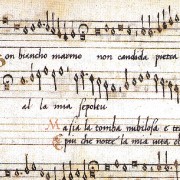 on biancho marmo non candida pietra
al la mia sepoltu
Ma sia la tomba nubilosa e te
E piu che notte la mia uita